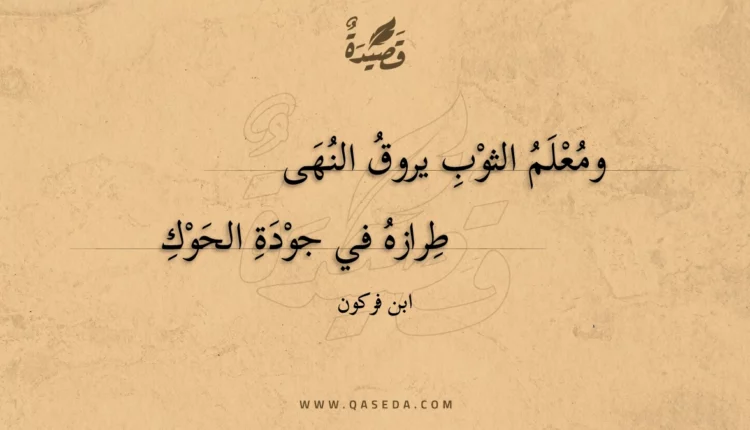 قَصِيْدَةٌ
ومُعْلَمُ الثوْبِ يروقُ النُهَى
طِرازهُ في جوْدَةِ الحَوْكِ
ابن فركون
WWW.QASEDA.COM